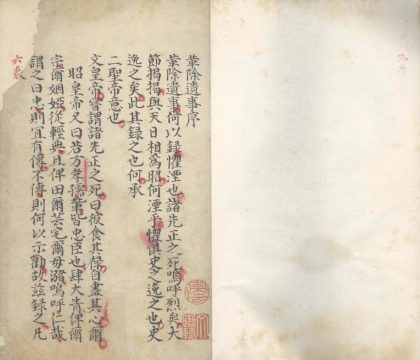 革除遺事序
革除遺事何以録懼湮也諸先正之死嗚呼烈矣大
節揭揭與天日相為昭何湮乎懼愼史之逸之也史
逸之矣此其録之也何承
二聖帝意也
文皇帝嘗謂諸先正之死曰彼食其祿自盡其心爾
昭皇帝又曰若方孝孺軰皆忠臣也肆大眚俾爾
宗爾姻婭從輕典且俾田爾芸宅爾毋瀦嗚呼仁哉
謂之曰忠則宜有傳不傳則何以示勸故兹録之凡